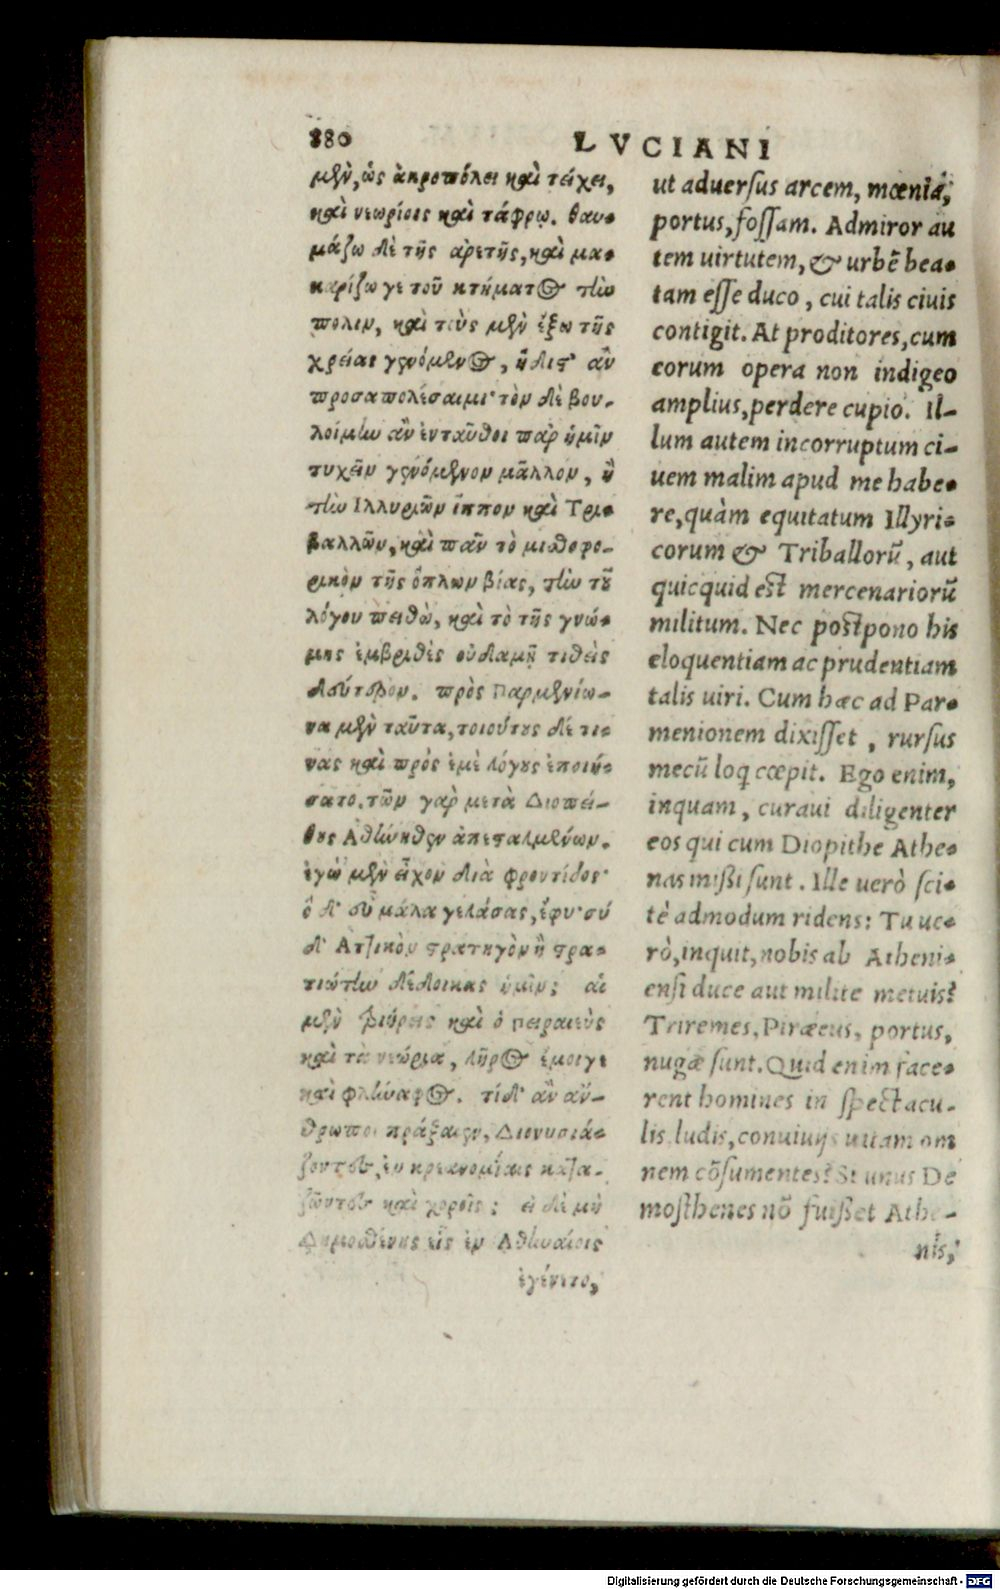 880
LVCIANI
μὲν, ὡς ἀκροπόλει καὶ τείχει,
καὶ νεωρίοις καὶ τάφρῳ. θαυ-
μάζω δὲ τῆς ἀρετῆς, καὶ μα-
καρίζω γε τοῦ κτήματος τὴν
πόλιν, καὶ τοὺς μὲν ἔξω τῆς
χρείας γενόμενος, ἥδιστ' ἂν
προσαπολέσαιμι· τὸν δὲ βου-
λοίμην ἂν ἐνταῦθοι παρ' ἡμῖν
τυχεῖν γενόμενον μᾶλλον, ἢ
τὴν Ἰλλυριῶν ἵππον καὶ Τρι-
βαλλῶν, καὶ πᾶν τὸ μισθοφο-
ρικὸν τῆς ὅπλων βίας, τὴν τοῦ
λόγου πειθὼ, καὶ τὸ τῆς γνώ-
μης ἐμβριθὲς οὐδαμῇ τιθεὶς
δεύτερον. πρὸς Παρμενίω-
να μὲν ταῦτα, τοιούτους δέ τι-
νας καὶ πρὸς ἐμὲ λόγους ἐποιή-
σατο. τῶν γὰρ μετὰ Διοπεί-
θους Ἀθήνηθεν ἀπεσταλμένων.
ἐγὼ μὲν εἶχον διὰ φροντίδος·
ὁ δ' εὖ μάλα γελάσας, ἔφη· σύ
δ' Ἀττικὸν στρατηγὸν ἢ στρα-
τιώτην δέδοικας ἡμῖν; αἱ
μὲν τριήρεις καὶ ὁ Πειραιεὺς
καὶ τὰ νεώρια, λῆρος ἔμοιγε
καὶ φλήναφος. τί δ' ἂν ἄν-
θρωποι πράξαιεν, Διονυσιά-
ζοντες, ἐν κρεανομίαις κατα-
ζῶντες καὶ χοροῖς; εἰ δὲ μὴ
Δημοσθένης εἷς ἐν Ἀθηναίοις
ἐγένετο,
ut aduersus arcem, mœnia,
portus, fossam. Admiror au
tem uirtutem, & urbē bea-
tam esse duco, cui talis ciuis
contigit. At proditores, cum
eorum opera non indigeo
amplius, perdere cupio. Il-
lum autem incorruptum ci-
uem malim apud me habe-
re, quàm equitatum Illyri-
corum & Triballorū, aut
quicquid est mercenariorū
militum. Nec postpono his
eloquentiam ac prudentiam
talis uiri. Cum hæc ad Par-
menionem dixisset, rursus
mecū loq cœpit. Ego enim,
inquam, curaui diligenter
eos qui cum Diopithe Athe-
nas missi sunt. Ille uerò sci-
tè admodum ridens: Tu ue-
rò, inquit, nobis ab Atheni-
ensi duce aut milite metuis?
Triremes, Piræeus, portus,
nugæ sunt. Quid enim face-
rent homines in spectacu-
lis ludis, conuiuijs uitam om
nem cōsumentes? Si unus De
mosthenes nō fuisset Athe-
nis,
Digitalisierung gefördert durch die Deutsche Forschungsgemeinschaft - DFG